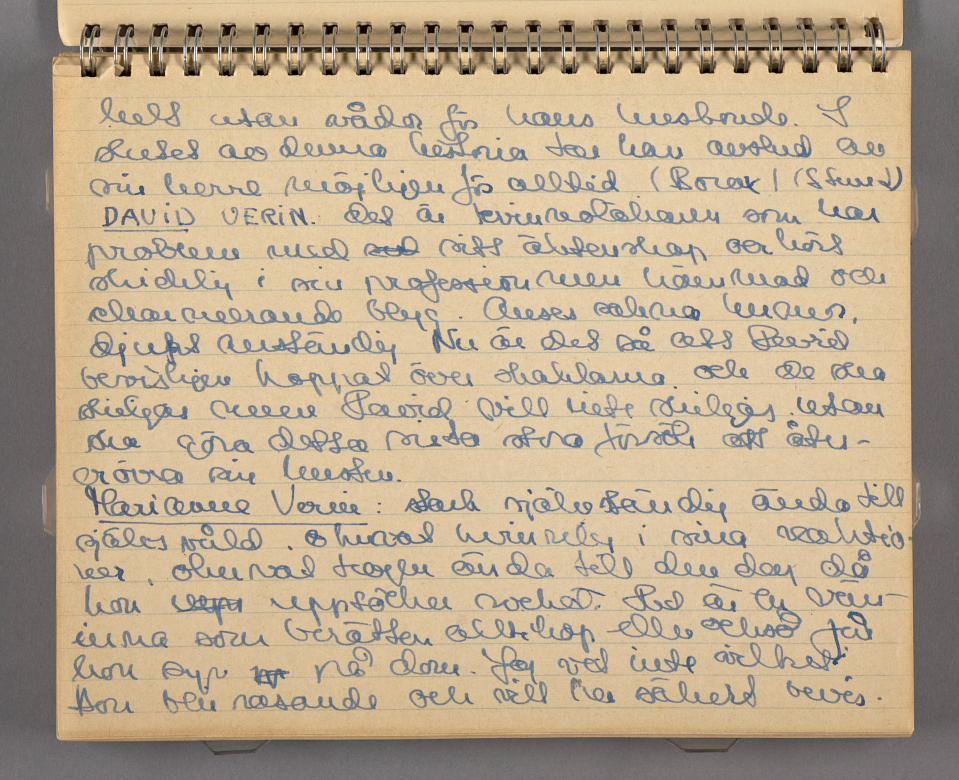 helt utan vådor för hans husbonde. I
slutet av denna historia tar han avsked av
sin herre möjligen för alltid (Borax) (Stund)
DAVID VERIN. Det är kvinnoläkaren som har
problem med sitt äktenskap oerhört
skicklig i sin profession men hämmad och
charmerande blyg. Anses sakna humor,
djupt anständig Nu är det så att David
bevisligen hoppat över skaklarna. och de ska
skiljas men David vill inte skiljas utan
ska göra detta sista stora försök att åter-
erövra sin hustru.
Marianne Verin: stark självständig ända till
själs våld. ohurvat kvinnlig i sina reaktio-
ner, trogen ända till den dag då
hon upptäcker sveket. Det är en vän-
inna som berättar alltihop eller också får
hon syn på dom. Jag vet inte vilket.
Hon blir rasande och vill ha säkert bevis.